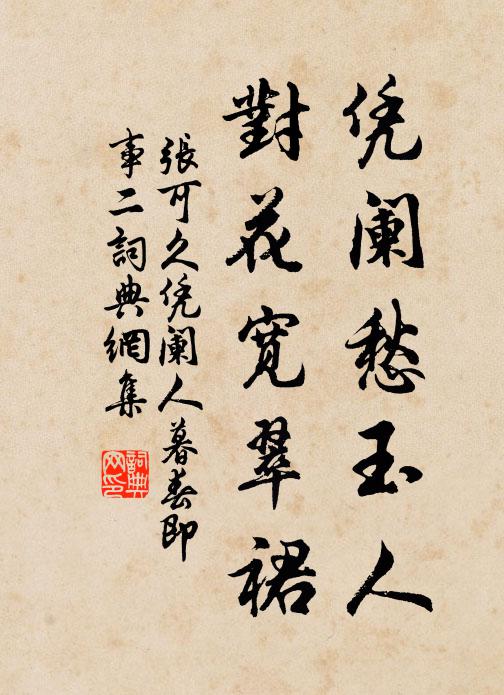 凭阑愁玉人
對花寬翠裙
張可久凭阑人暮春即
事二詞典網集
詞典
网印